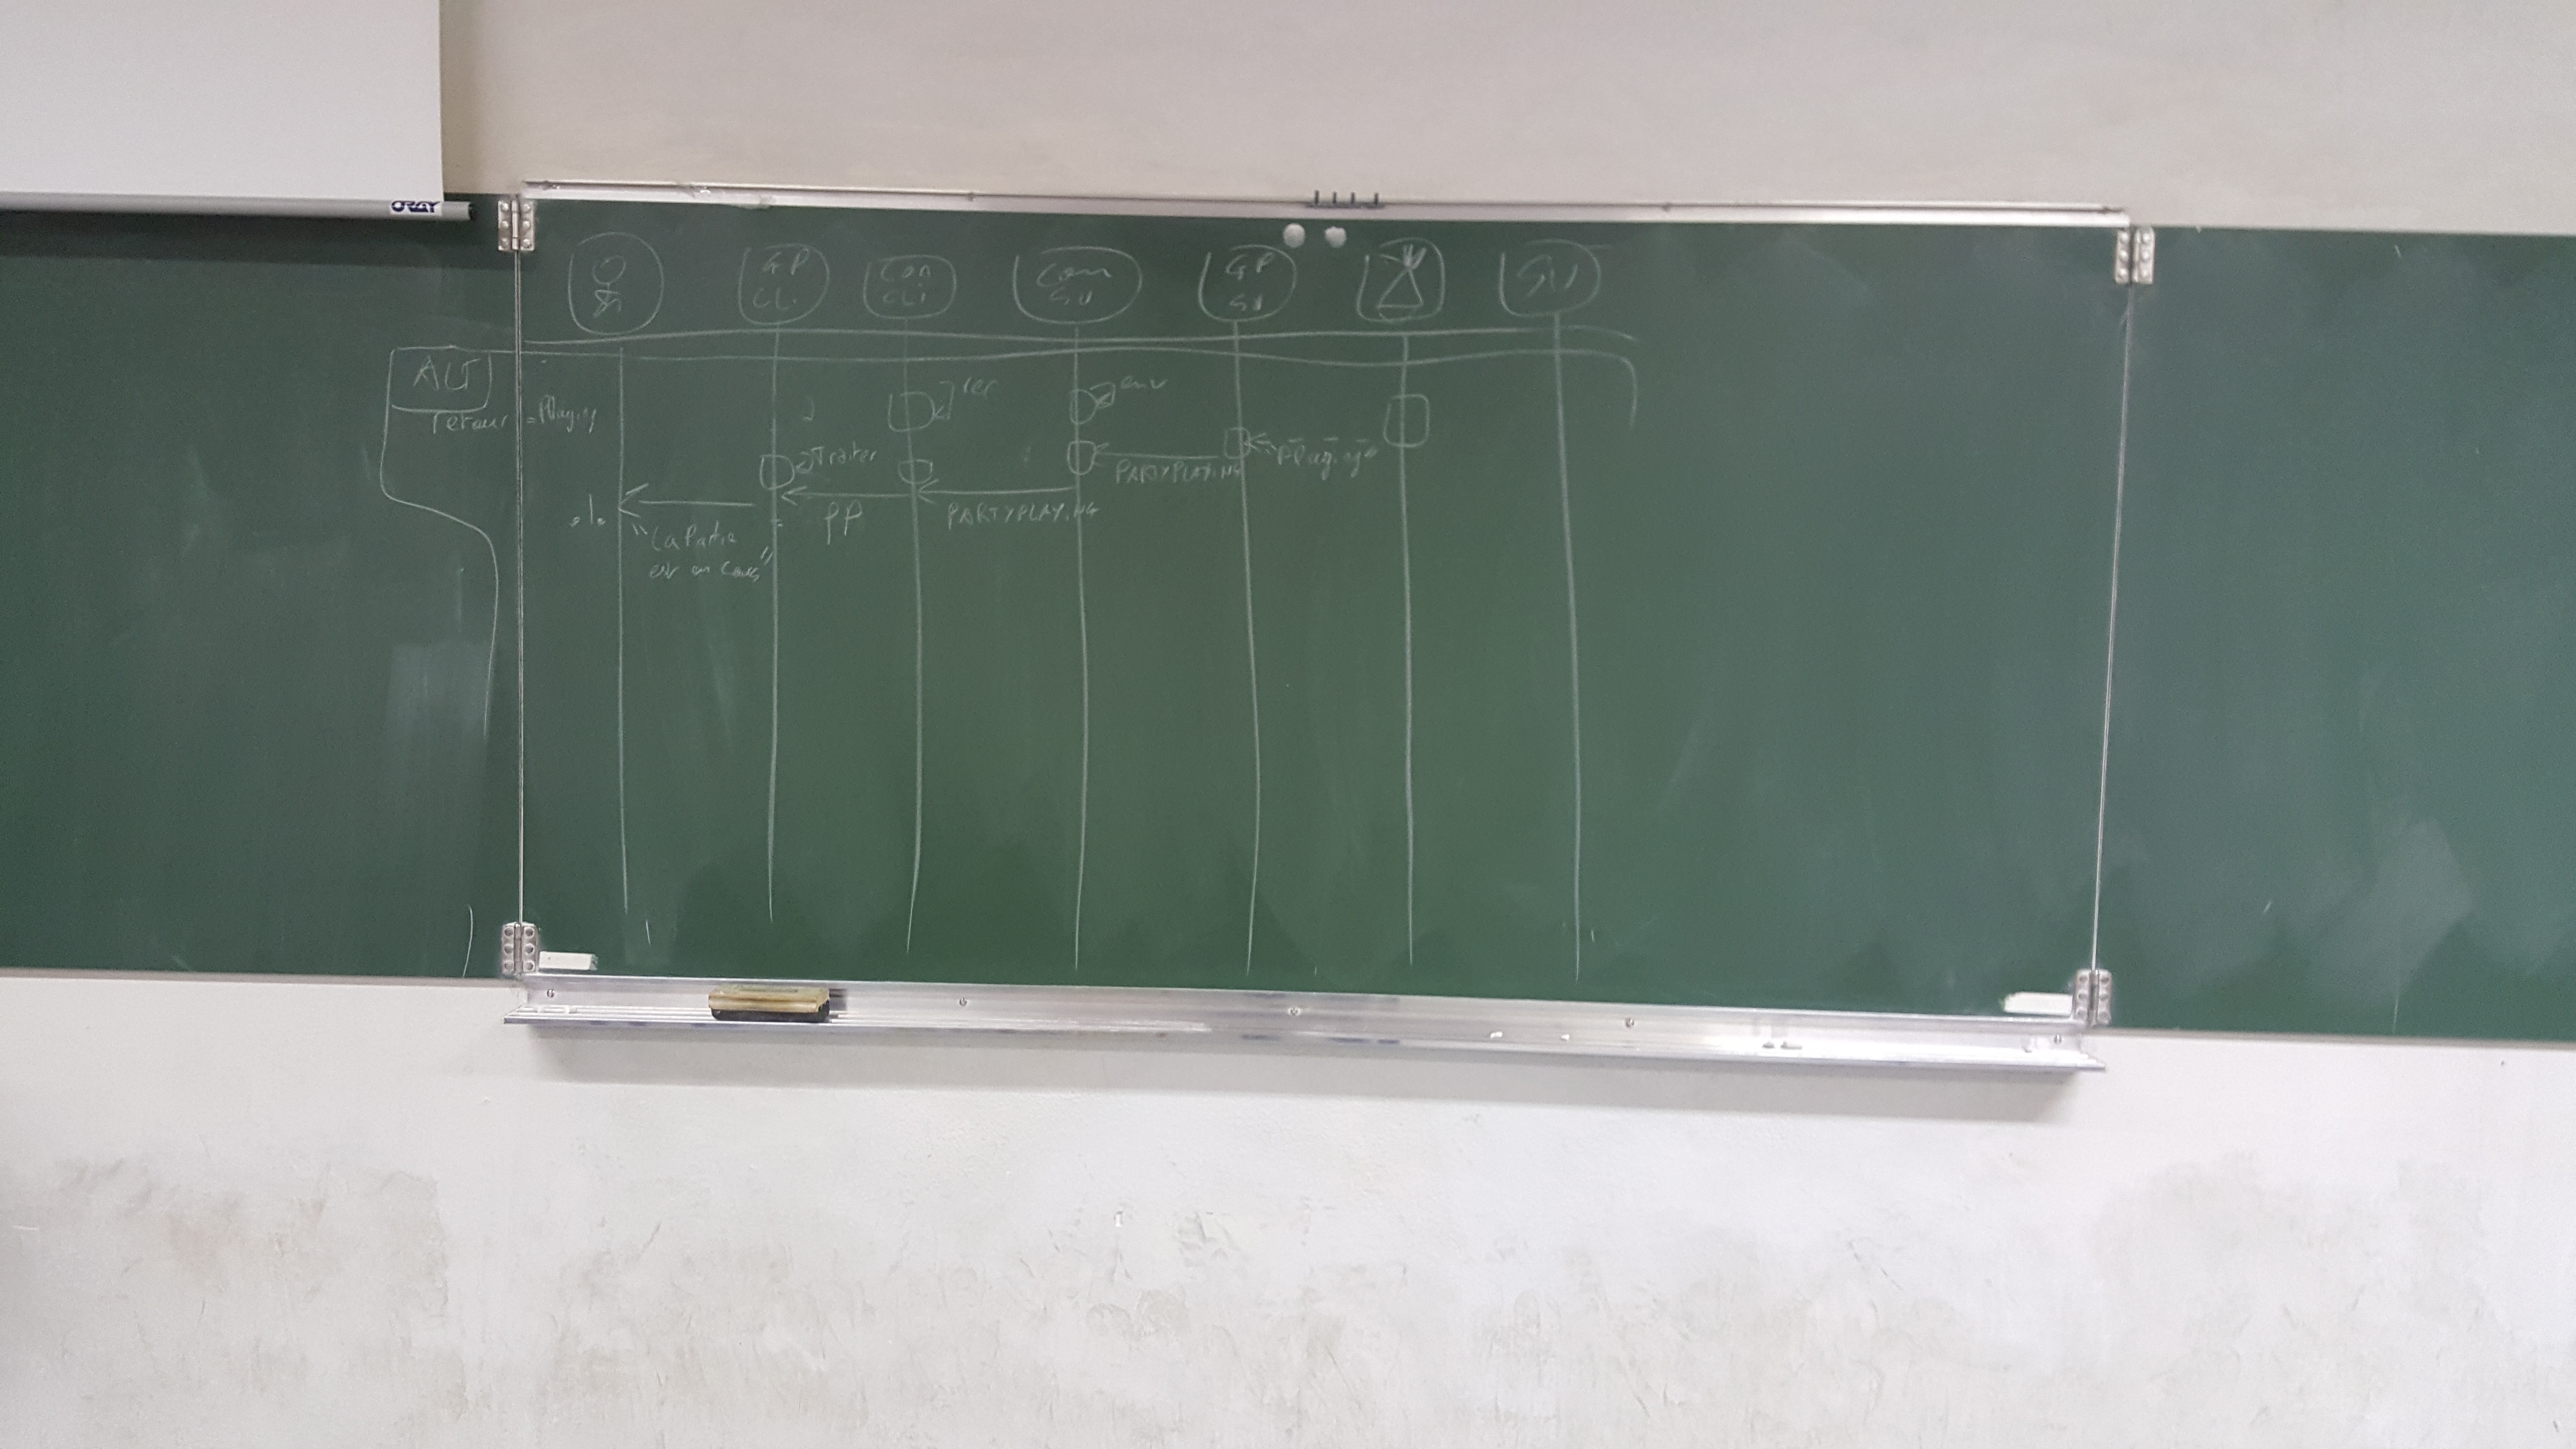 ORAY
GP
CLi
Com
CLi
Com
SV
GP
SV
ALT
retour = Playing
env
Traiter
"Playing"
PARTYPLAYING
PARTYPLAYING
PP
"La Partie
est en cours"